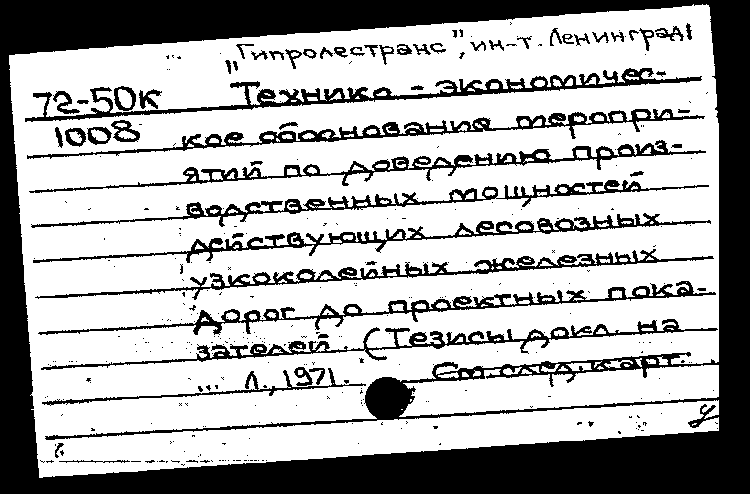 „Гипролестранс", ин-т. Ленинград
72-50к Технико-экономичес-
1008 кое обоснование меропри-
ятий по доведению произ-
водственных мощностей
действующих лесовозных
узкоколейных железных
дорог до проектных пока-
зателей. (Тезисы докл. на
... Л., 1971. См. след. карт.